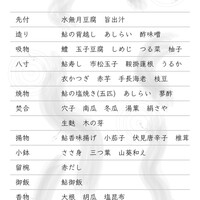 先付　水無月豆腐　旨出汁
造り　鮎の背越し　あしらい　酢味噌
吸物　鱧　玉子豆腐　しめじ　つる菜　柚子
八寸　鮎寿し　市松玉子　鞍掛蓮根　うるか
衣かつぎ　赤芋　手長海老　枝豆
焼物　鮎の塩焼き(五匹)　あしらい　蓼酢
焚合　穴子　南瓜　冬瓜　湯葉　絹さや
生麩　木の芽
揚物　鮎香味揚げ　小茄子　伏見唐辛子　椎茸
小鉢　ささ身　三つ葉　山葵和え
留椀　赤だし
御飯　鮎御飯
香物　大根　胡瓜　塩昆布